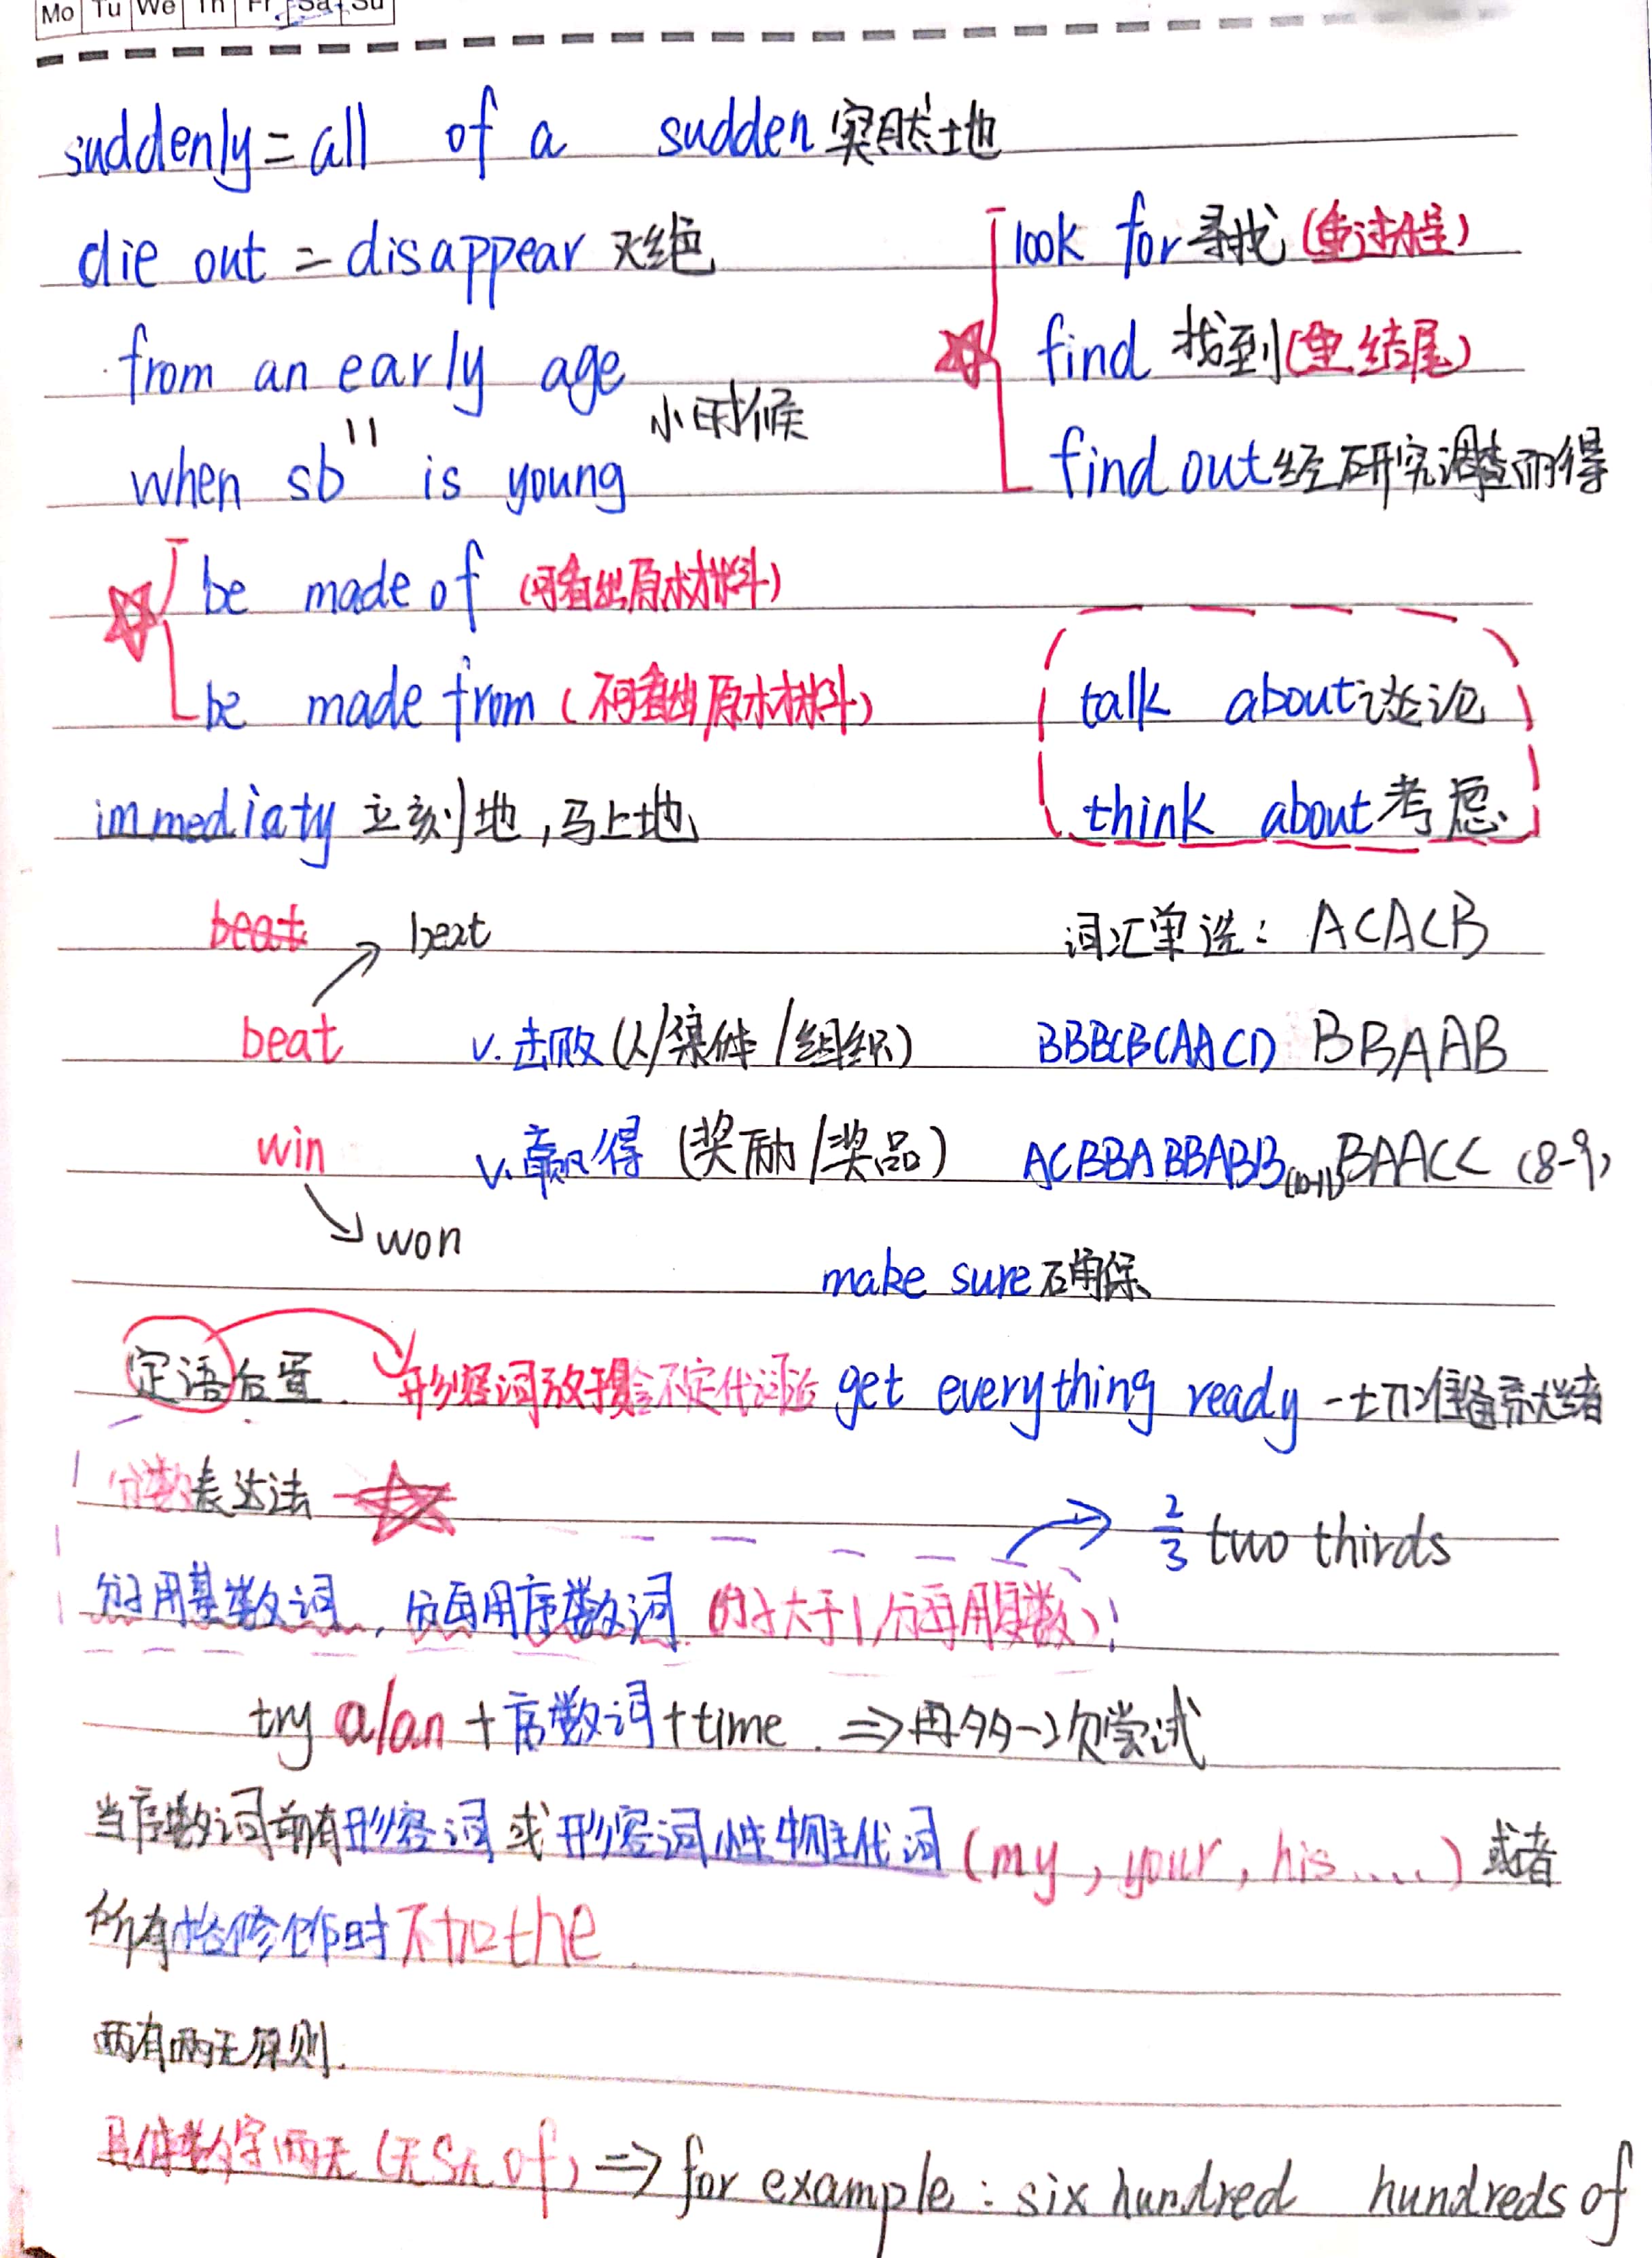 Mo Tu We Th Fr Sa Su
suddenly = all of a sudden 突然地
die out = disappear 灭绝
look for 寻找 (重过程)
from an early age
find 找到 (重结尾)
小时候
when sb is young
find out 经研究调查而得
be made of (可看出原木材料)
be made from (不可看出原木材料)
talk about 谈论
immediaty 立刻地，马上地
think about 考虑
beat beat
词汇单选： ACACB
beat v. 击败 (人/集体/组织)
BBBCBCAACD BBAAB
win v. 赢得 (奖励/奖品)
ACBBABBABB (10-11) BAACC (8-9)
won
make sure 确保
定语后置 形容词放于复合不定代词后 get everything ready 一切准备就绪
分数表达法
2/3 two thirds
分子用基数词，分母用序数词 (分子大于1，分母用复数)
try a/an + 序数词 + time ⇒ 再多一次尝试
当序数词前有形容词或形容词性物主代词 (my, your, his....) 或者
所有格修饰时不加the
两有两无原则.
具体数字两无 (无s无of) ⇒ for example : six hundred hundreds of